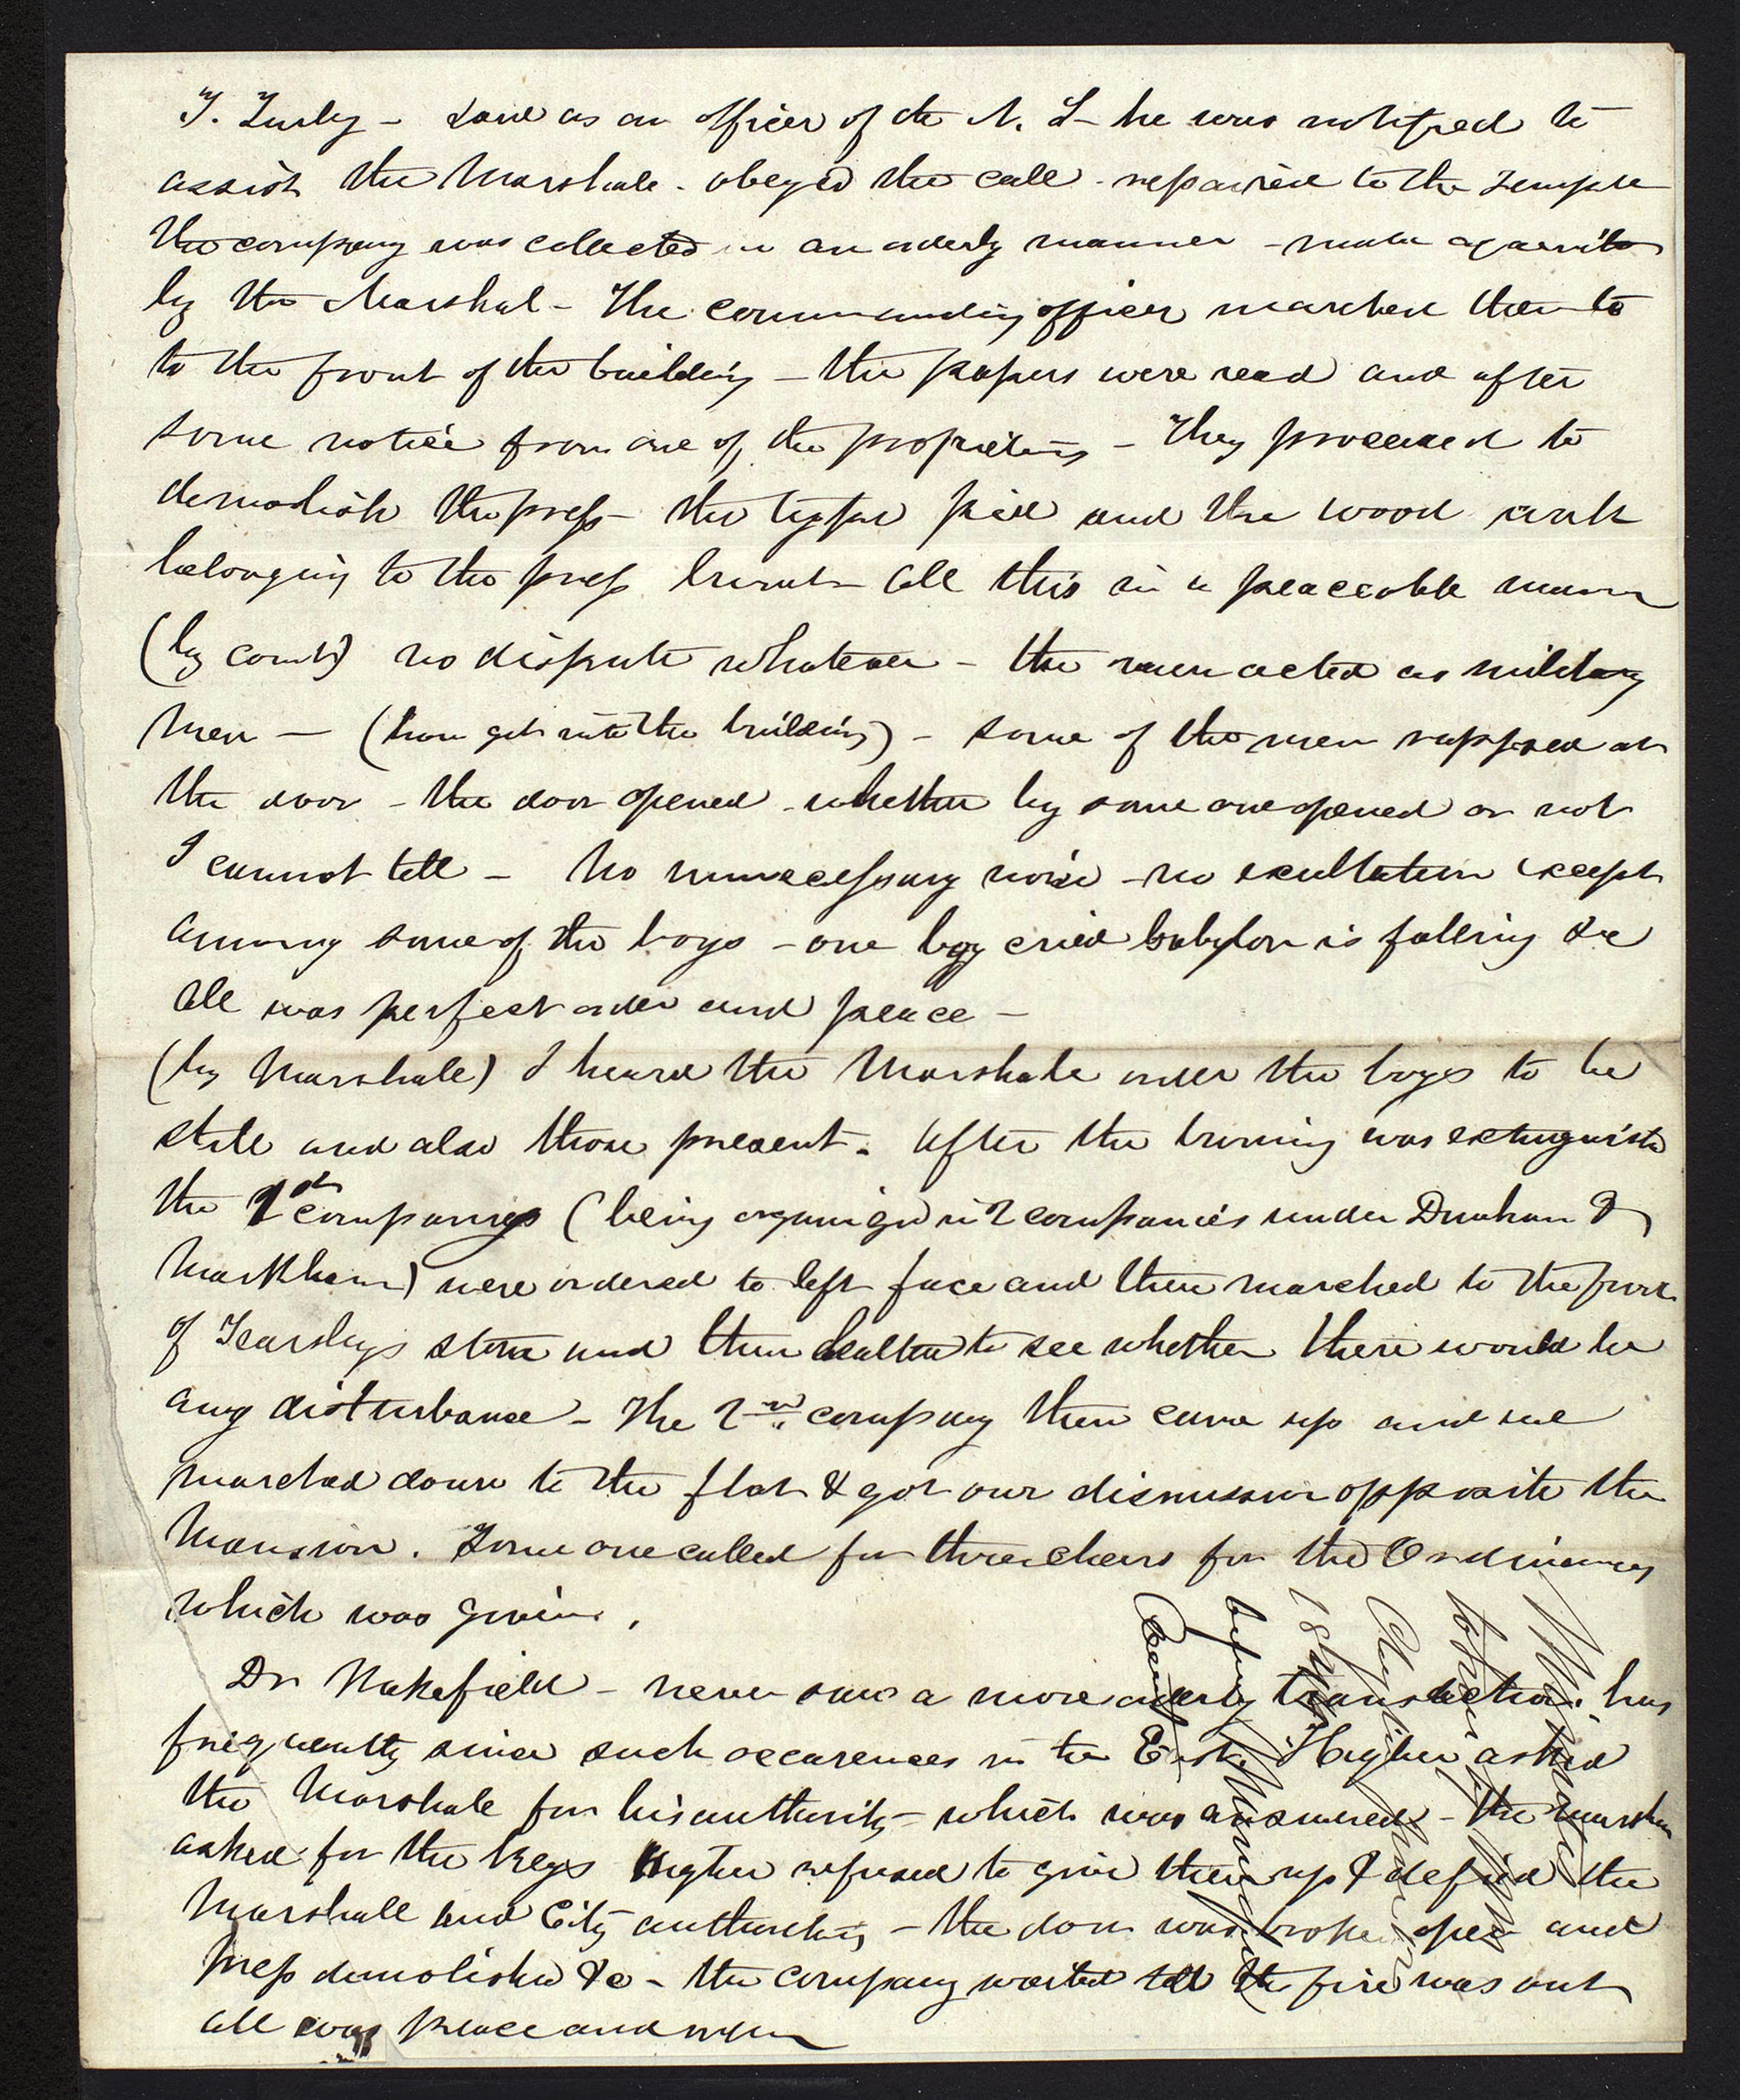 T. Turley – said as an officer of the N. L – he was notified to
assist the Marshale – obeyed the call – repaired to the Temple
the company was collected in an orderly manner – made acquainted
by the Marshal – The commanding officer marched them to
to the front of the building – the papers were read and after
some notice from one of the proprietors – They proceeded to
demolish the press – the type pied and the wood work
belonging to the press burnt – all this in a peaceable manner
(by court) no dispute whatever – the men acted as military
men — (how get into the building) – some of the men rapped at
the door – the door opened – whether by some one opened or not
I cannot tell – No unnecessary noise – no exultation except
among some of the boys – one boy cried babylon is falling &c
all was perfect order and peace –
(by Marshale) I heard the Marshale order the boys to be
still and also those present. After the burning was extinguishd
the 1st companys (being organized in 2 companies under Dunham &
Markham) were ordered to left face and then marched to the front
of Tearsleys store and then halted to see whether there would be
any disturbance – The 2nd company then came up and we
marched down to the flat & got our dismission opposite the
Mansion. Some one called for three cheers for the Ordinances
which was given.
Dr Wakefield – never saw a more orderly transaction. has
frequently since such occurences in the East. Higbee asked
the Marshale for his authority – which was answered – the marshal
asked for the keys Higbee refused to give them up & defied the
Marshall and City authorities – the door was broke open and
press demolished &c – the company waited till the fire was out
all was peace and order
before Municipal
Court